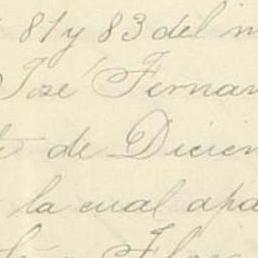 81 y 83 del
José Fernan
de Dicien
la cual apa